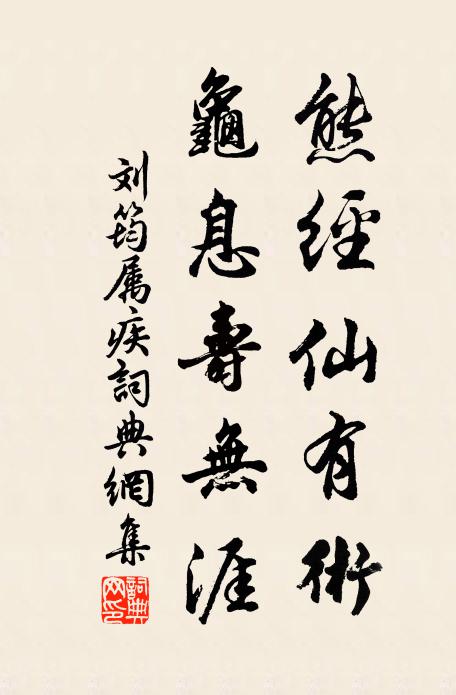 熊經仙有術
龜息壽無涯
刘筠属疾詞典網集
詞典网印